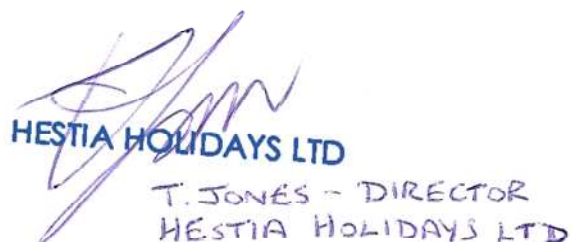 HESTIA HOLIDAYS LTD
T. JONES - DIRECTOR
HESTIA HOLIDAYS LTD